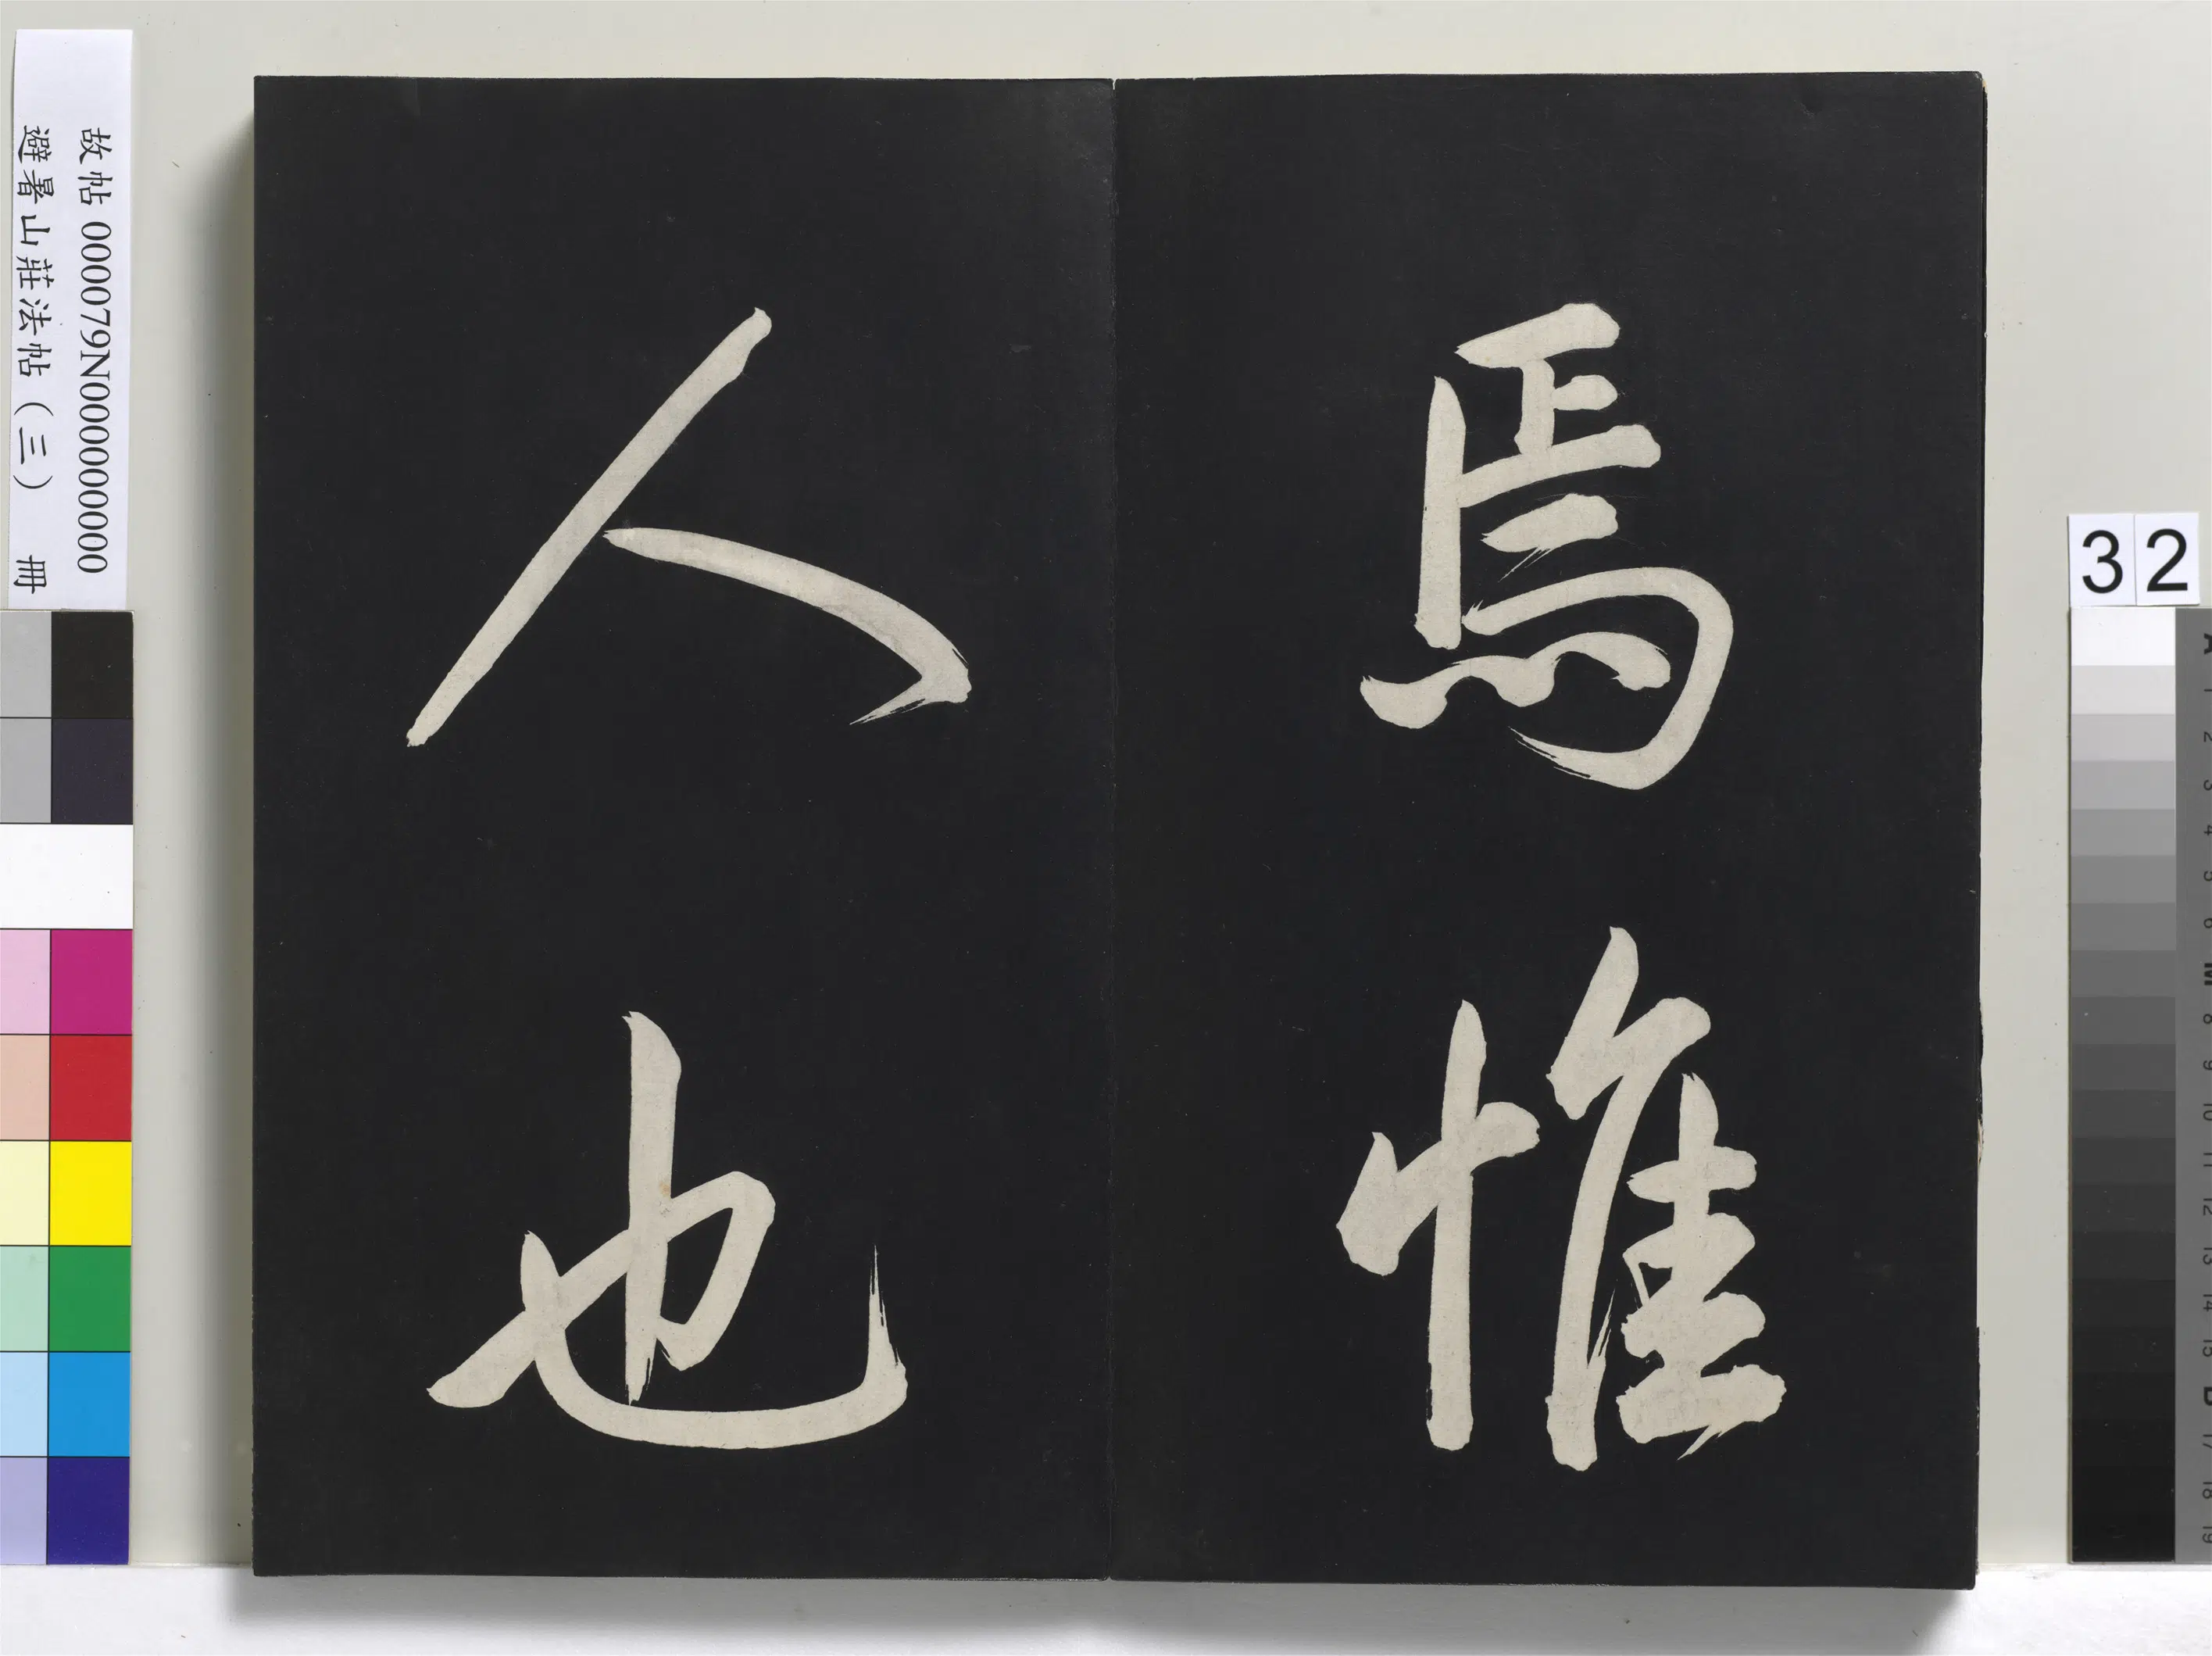 焉惟
人也
故帖 000079N000000000
避暑山莊法帖（三） 冊
32
A 1 2 3 4 5 6 M 8 9 10 11 12 13 14 15 B 17 18 19